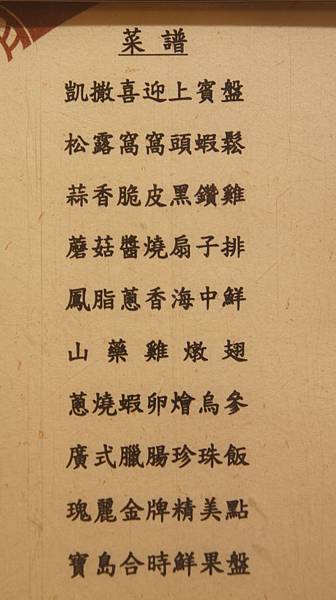 菜譜
凱撒喜迎上賓盤
松露窩窩頭蝦鬆
蒜香脆皮黑鑽雞
蘑菇醬燒扇子排
鳳脂蔥香海中鮮
山藥雞燉翅
蔥燒蝦卵燴烏參
廣式臘腸珍珠飯
瑰麗金牌精美點
寶島合時鮮果盤